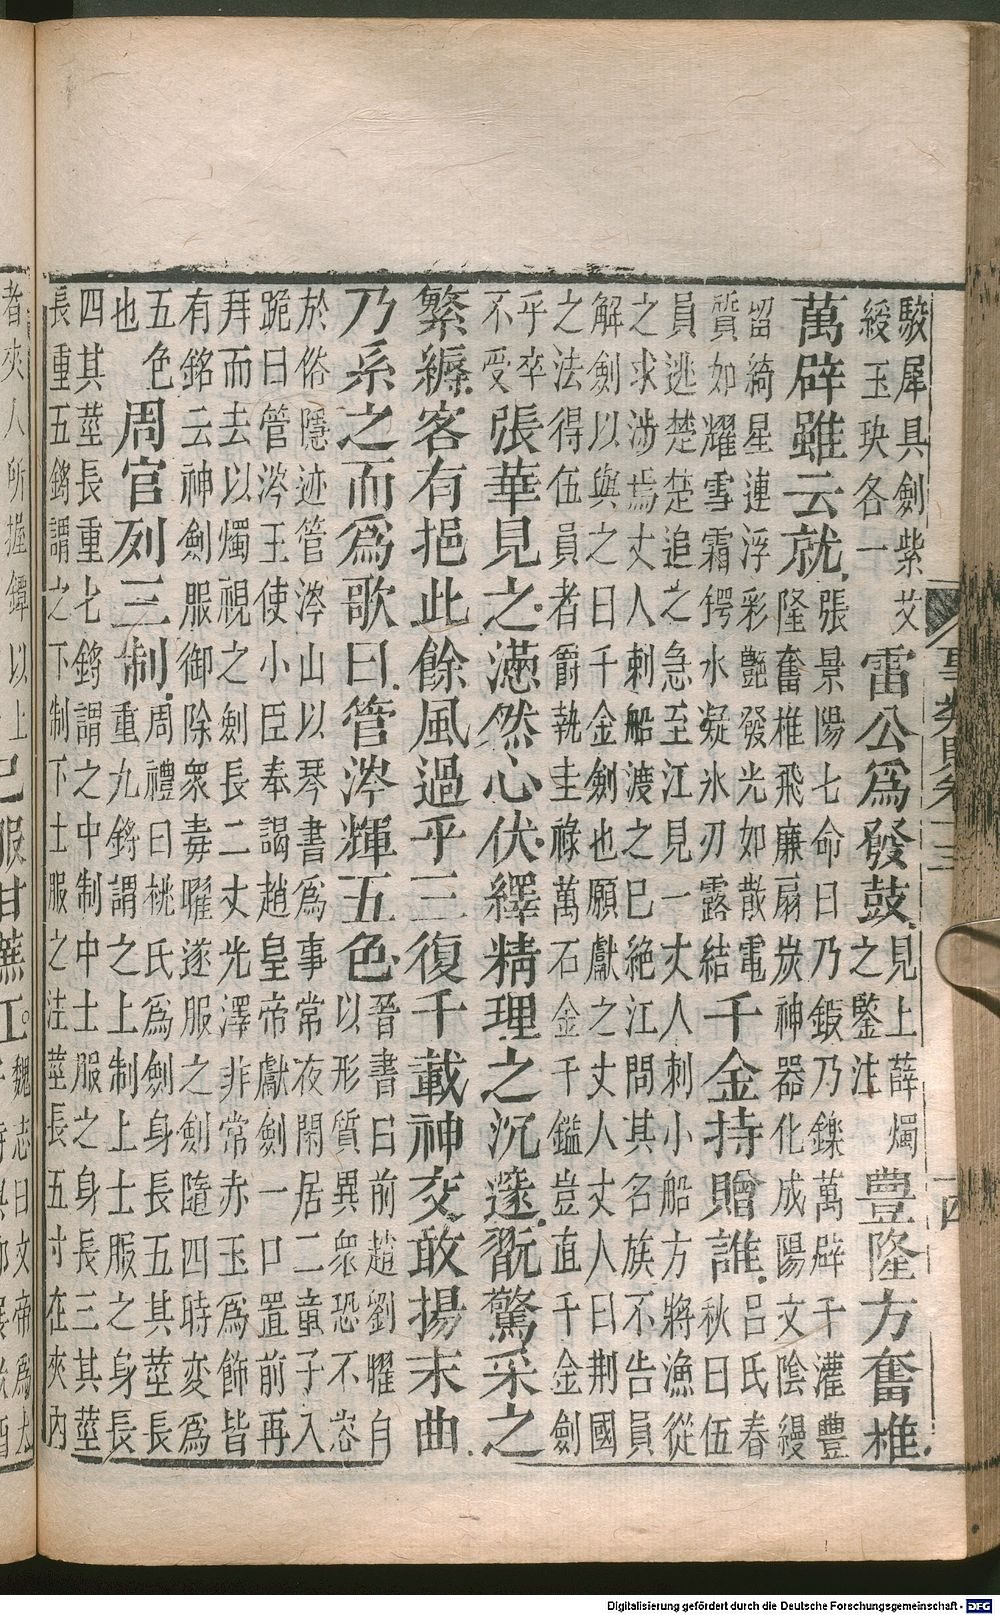 駿犀具劍紫艾
綬玉玦各一
雷公爲發鼓
見上薛燭
之鑒注
豐隆方奮椎
萬辟雖云就
張景陽七命曰乃鍛乃鑠萬辟千灌豐
隆奮椎飛廉扇炭神器化成陽文陰縵
留綺星連浮彩艷發光如散電
質如耀雪霜鍔水凝氷刃露結
千金持贈誰
呂氏春
秋曰伍
員逃楚楚追之急至江見一丈人刺小船方將漁從
之求涉焉丈人刺船渡之巳絶江問其名族不告員
解劍以與之曰千金劍也願獻之丈人丈人曰荆國
之法得伍員者爵執圭祿萬石金千鎰豈直千金劍
乎卒
不受
張華見之懣然心伏繹精理之沉邃翫驚采之
繁縟客有挹此餘風過乎三復千載神交敢揚末曲
乃系之而爲歌曰管涔輝五色
晉書曰前趙劉曜自
以形質異衆恐不容
於俗隱迹管涔山以琴書爲事常夜閑居二童子入
跪曰管涔王使小臣奉謁趙皇帝獻劍一口置前再
拜而去以燭視之劍長二丈光澤非常赤玉爲飾皆
有銘云神劍服御除衆毒曜遂服之劍隨四時變爲
五色
也
周官列三制
周禮曰桃氏爲劍身長五其莖長
重九鋝謂之上制上士服之身長
四其莖長重七鋝謂之中制中士服之身長三其莖
長重五鋝謂之下制下士服之注莖長五寸在夾內
者夾人所握鐔以上
魏志曰文帝爲
Digitalisierung gefördert durch die Deutsche Forschungsgemeinschaft - DFG